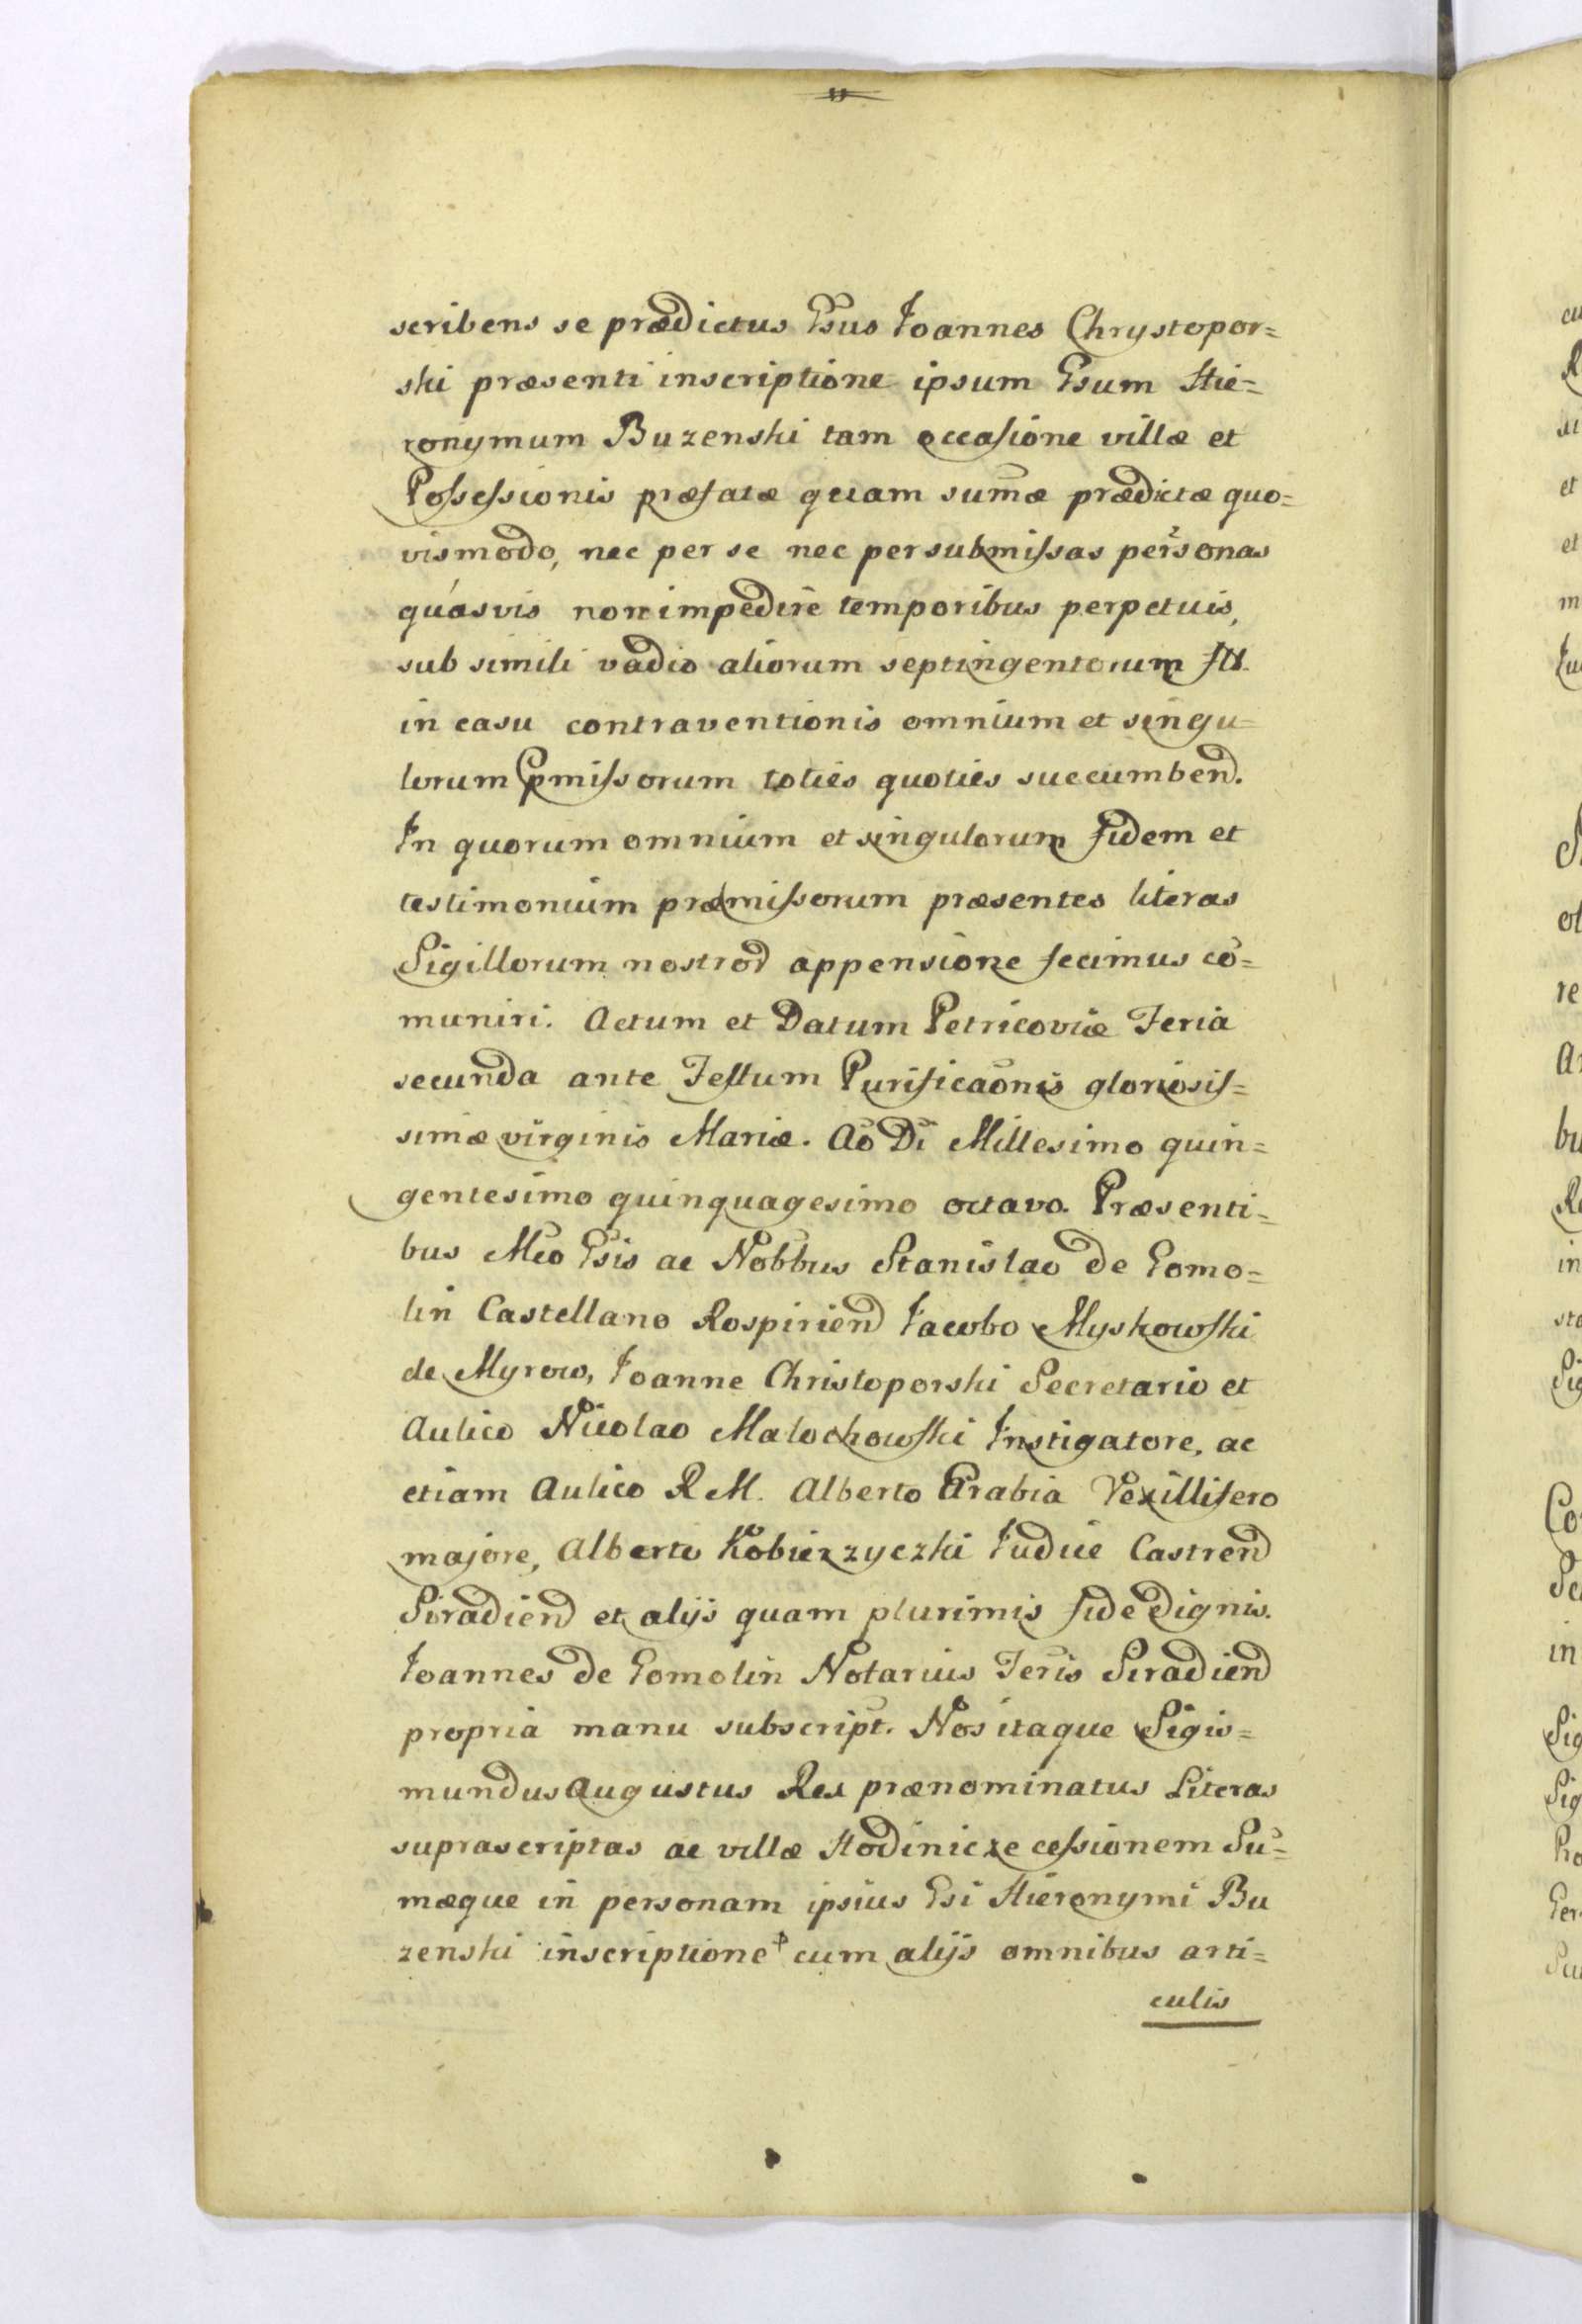 scribens se prædictus Gsus Joannes Chrystopor=
ski præsenti inscriptione ipsum Gsum Hie=
ronymum Buzenski tam occasione villæ et
Possessionis præfatæ quam sumæ prædictæ quo=
vismodo, nec per se nec per submissas personas
quasvis non impedire temporibus perpetuis,
sub simili vadio aliorum septingentorum fll.
in casu contraventionis omnium et singu=
lorum pmissorum toties quoties succumbend.
In quorum omnium et singulorum fidem et
testimonium præmissorum præsentes literas
Sigillorum nostror appensione fecimus co=
muniri. Actum et Datum Petricoviæ Feria
secunda ante Festum Purificaonis gloriosis=
simæ virginis Mariæ. Ao Di Millesimo quin=
gentesimo quinquagesimo octavo. Præsenti=
bus Mco Gsis ac Nobbus Stanislao de Gomo=
lin Castellano Rospirien Jacobo Myskowski
de Myrow, Joanne Christoporski Secretario et
Aulico Nicolao Malochowski Instigatore, ac
etiam Aulico R M. Alberto Grabia Vexillifero
majore, Alberto Kobierzyczki Judice Castren
Siradien et alijs quam plurimis fide dignis.
Joannes de Gomolin Notarius Teris Siradien
propria manu subscript. Nos itaque Sigis=
mundus Augustus Rex prænominatus Literas
suprascriptas ac villæ Hodinicze cessionem Su=
mæque in personam ipsius Gsi Hieronymi Bu
zenski inscriptione cum alijs omnibus arti=
culis